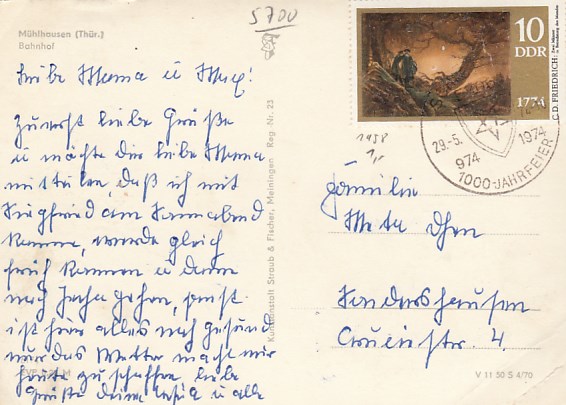 5700
Mühlhausen (Thür.)
Bahnhof
Liebe Mama u
Zuerst liebe Grüße
u möchte dir liebe Mama
mitteilen, daß ich mit
Siegfried am Sonnabend
komme, werde gleich
früh kommen u dann
nach gehen, sonst
ist hier alles noch gesund
nur das Wetter macht mir
heute zu schaffen, liebe
Grüße deine u alle
Kunstanstalt Straub & Fischer, Meiningen Reg.-Nr. 23
10
DDR
1774
C. D. FRIEDRICH:
29.-5.
974
1974
1000-JAHRFEIER
Familie
Meta
Sondershausen
4
V 11 50 S 4/70